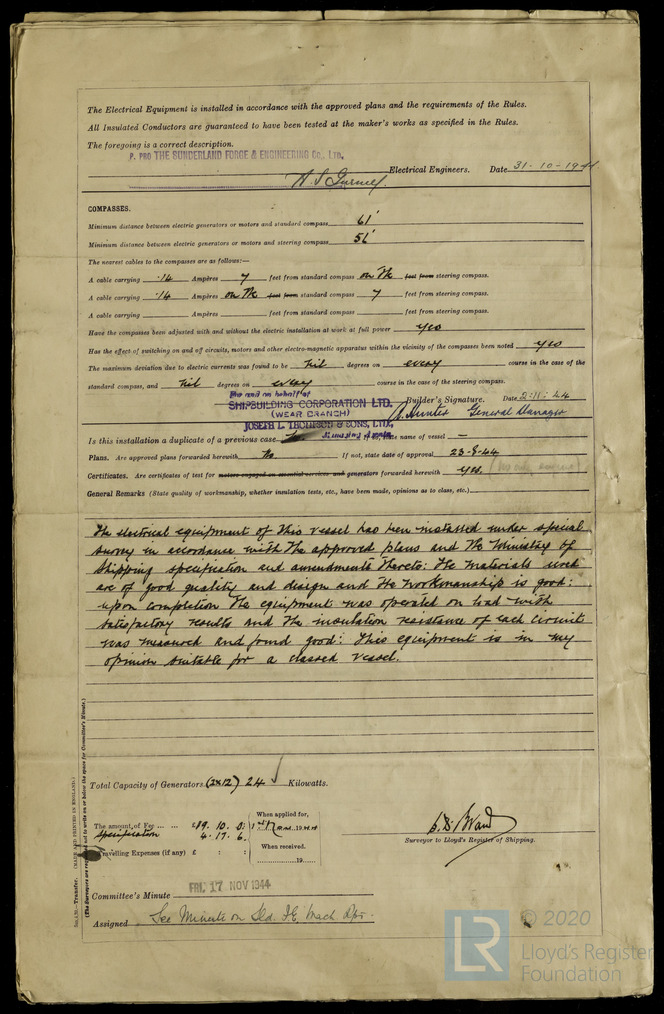 The Electrical Equipment is installed in accordance with the approved plans and the requirements of the Rules.
All Insulated Conductors are guaranteed to have been tested at the maker's works as specified in the Rules.
The foregoing is a correct description.
P. PRO THE SUNDERLAND FORGE & ENGINEERING CO., LTD.
Electrical Engineers. Date 31-10-1944
COMPASSES.
Minimum distance between electric generators or motors and standard compass 61'
Minimum distance between electric generators or motors and steering compass 51'
The nearest cables to the compasses are as follows:—
A cable carrying .14 Ampères 7 feet from standard compass on the feet from steering compass.
A cable carrying .14 Ampères on the feet from standard compass 7 feet from steering compass.
A cable carrying Ampères feet from standard compass feet from steering compass.
Have the compasses been adjusted with and without the electric installation at work at full power yes
Has the effect of switching on and off circuits, motors and other electro-magnetic apparatus within the vicinity of the compasses been noted yes
The maximum deviation due to electric currents was found to be nil degrees on every course in the case of the
standard compass, and nil degrees on every course in the case of the steering compass.
For and on behalf of
SHIPBUILDING CORPORATION LTD.
(WEAR BRANCH)
Builder's Signature. Date 2.11.44
A. Hunter General Manager
JOSEPH L. THOMPSON & SONS, LTD.
Managing Agents
Is this installation a duplicate of a previous case name of vessel —
Plans. Are approved plans forwarded herewith No If not, state date of approval 23-8-44
Certificates. Are certificates of test for motors engaged on essential services and generators forwarded herewith yes.
General Remarks (State quality of workmanship, whether insulation tests, etc., have been made, opinions as to class, etc.)
The electrical equipment of this vessel has been installed under special
survey in accordance with the approved plans and the Ministry of
Shipping specification and amendments thereto: The materials used
are of good quality and design and the workmanship is good:
upon completion the equipment was operated on load with
satisfactory results and the insulation resistance of each circuit
was measured and found good: This equipment is in my
opinion suitable for a classed vessel.
Total Capacity of Generators (2x12) 24 Kilowatts.
The amount of Fee £19. 10. 0. When applied for,
Specification 4. 17. 6.
Travelling Expenses (if any) £ : : When received.
19
Surveyor to Lloyd's Register of Shipping.
Committee's Minute FRI. 17 NOV 1944
Assigned See Minute on
5m.4.38.—Transfer. (MADE AND PRINTED IN ENGLAND.)
(The Surveyors are requested not to write on or below the space for Committee's Minute.)
LR © 2020
Lloyd's Register
Foundation